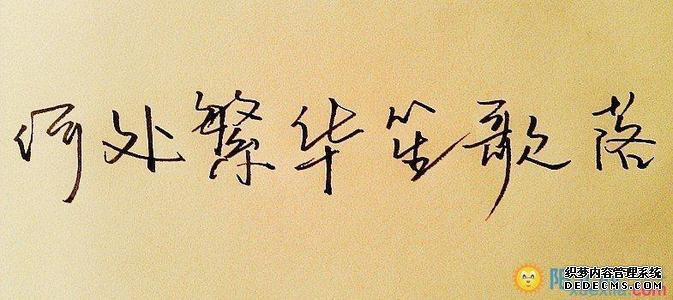 何处繁华笙歌落
织梦内容管理系统
DEDECMS.COM